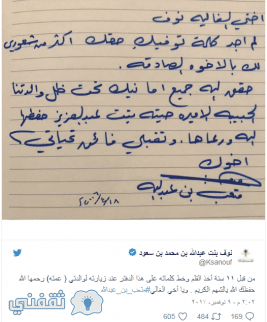 اختي الغالية نوف
لم اجد كلمة توفيك حقك اكثر من شعوري
لك بالاخوة الصادقة.
حقق الله جميع امانيك تحت ظل والدتنا
الحبيبة الاميرة حصة بنت عبدالعزيز حفظها
الله ورعاها. وتقبلي فائق تحياتي
اخوك
متعب بن عبدالله
نوف بنت عبدالله بن محمد بن سعود
@Ksanouf
من قبل ١١ سنة أخذ القلم وخط كلماته على هذا الدفتر عند زيارته لوالدتي ( عمته) رحمها الله
حفظك الله يالشهم الكريم . ويا أخي الغالي #متعب_بن_عبدالله
٢:٠٣ م - ٩ نوفمبر، ٢٠١٧
605 619 169
ثقفني